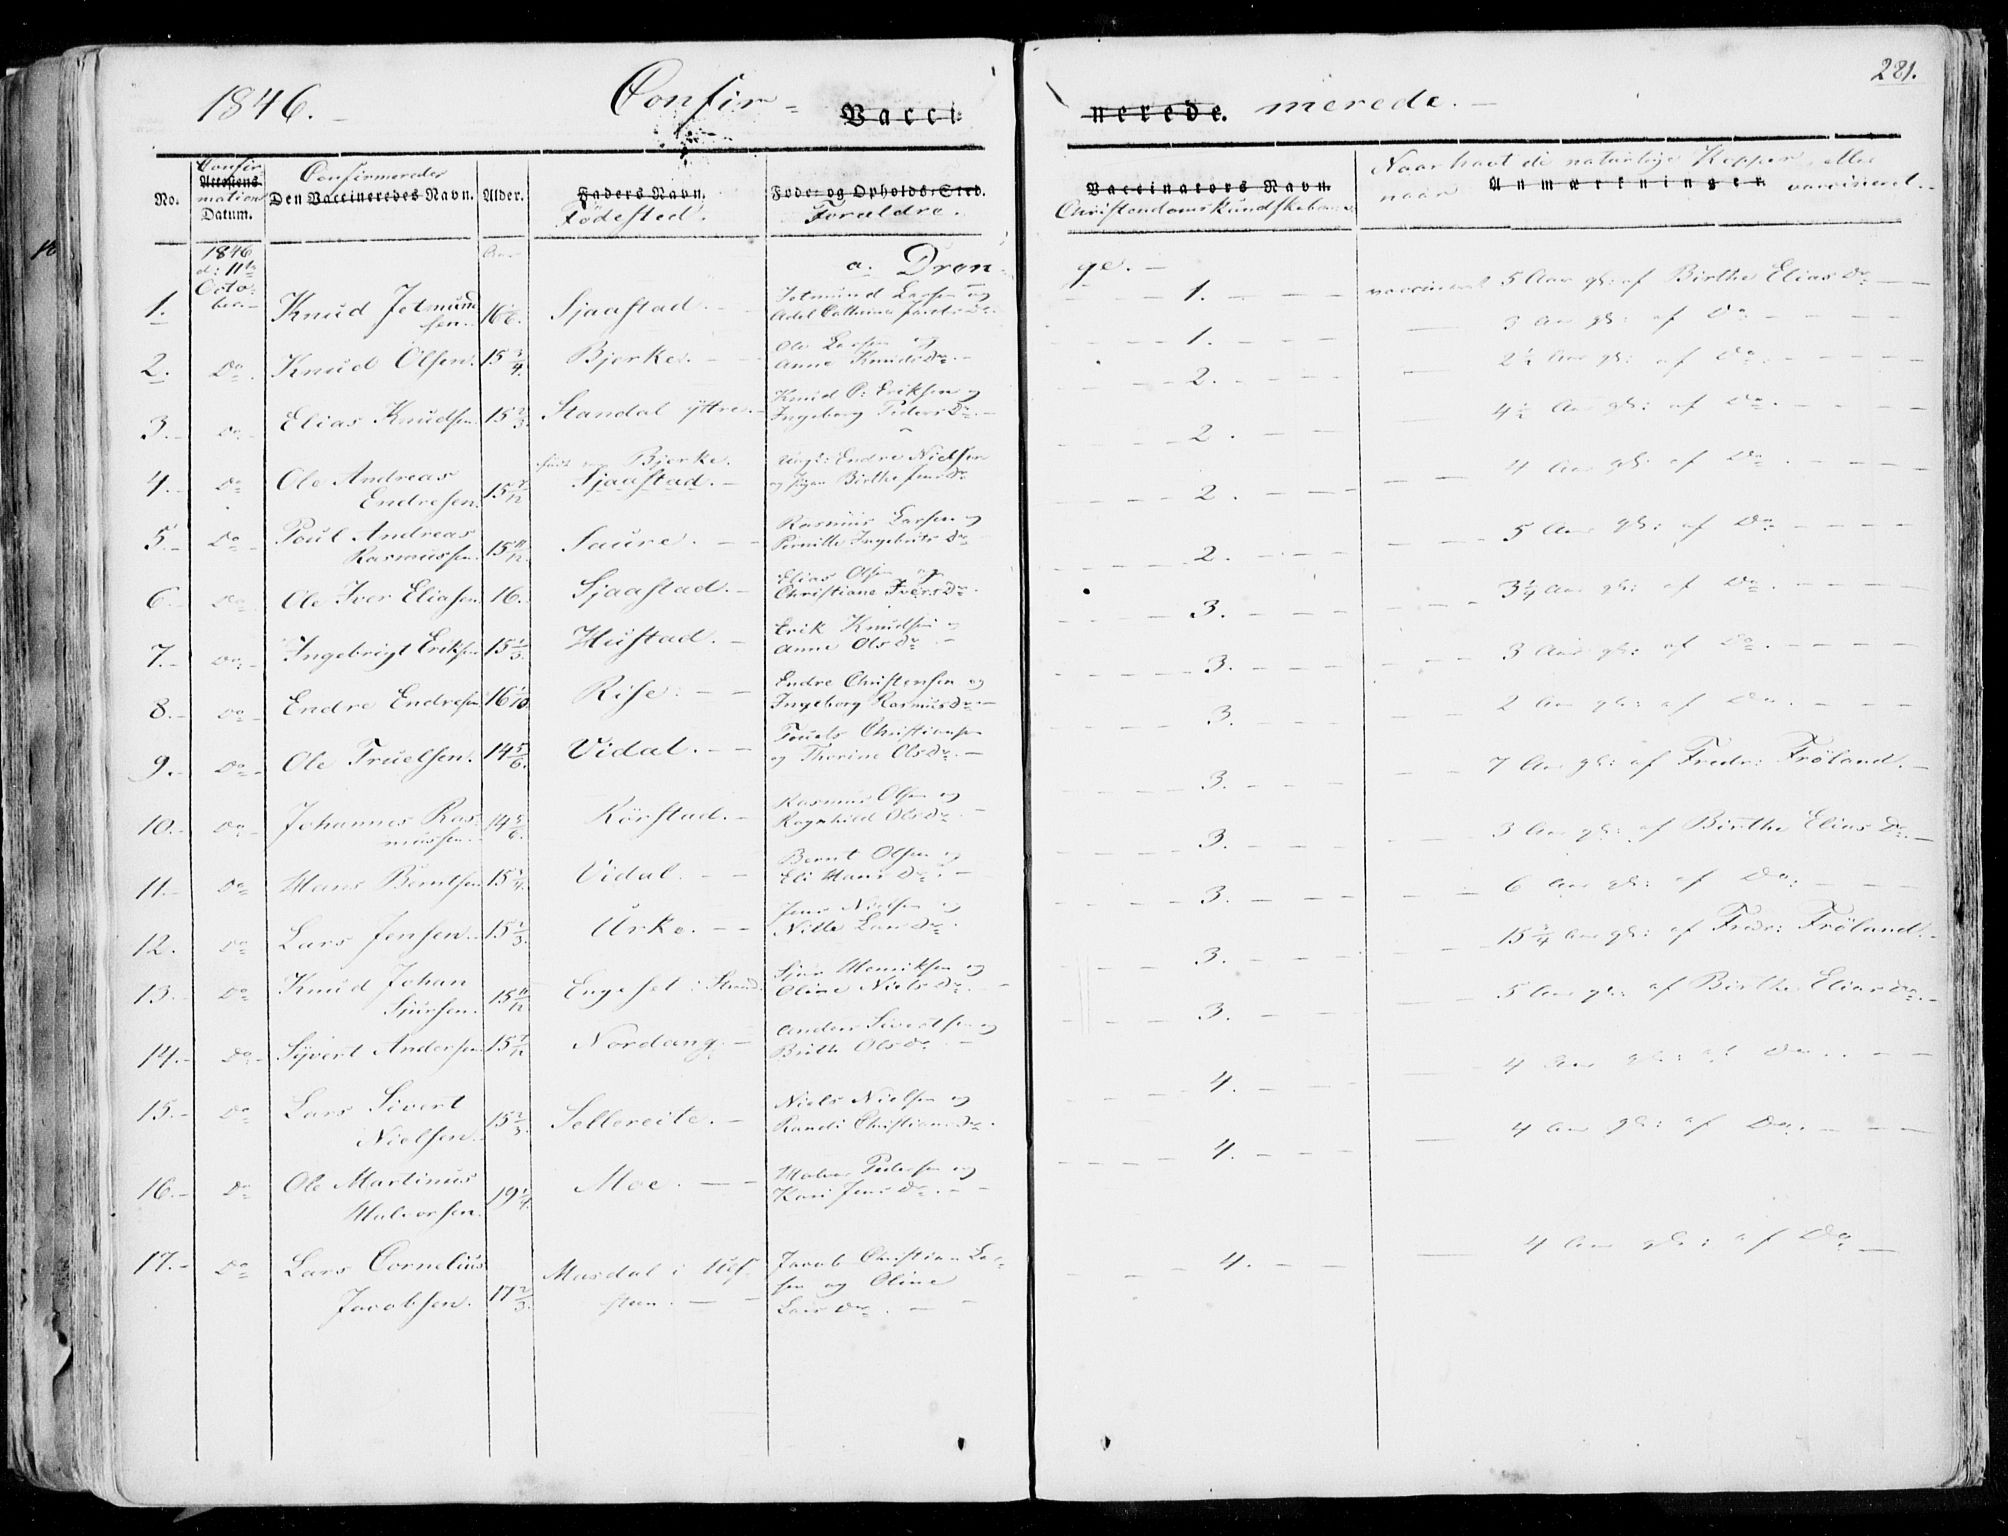 281.
1846. Confir= Vacci= nerede. merede.
No. Attestens Confirmations Datum. Den Vaccineredes Confirmeredes Navn. Alder. Faders Navn. Fødested. Føde- og Opholds-Sted. Forældre. Vaccinators Navn. Christendomskundskab Naar havt de naturlige Kopper, eller naar Anmærkninger. vaccineret.
1846 d: 11te October Aar a. Dren= ge.
1. Knud Jetmundsen. 16 Sjaastad. Jetmund Larsen og 1. vaccineret 5 Aar gl: af Birthe Elias Dr
2. Do Knud Olsen. 15 3/4. Bjerke. Ole Larsen og Anne Knuds Dr. 1. 3 Aar gl: af Do
3. Do Elias Knudsen. 15 2/3 Standal ÿttre. Knud P: Eriksen og Ingeborg Peders Dr. 2. 2 1/2 Aar gl: af Do.
4. Do Ole Andreas Endresen. 15 7/12 født paa Bjerke. Sjaastad. Ungk: Endre Nielsen og Pigen Birthe Jens Dr 2. 4 1/2 Aar gl: af Do.
5. Do Poul Andreas Rasmussen. 15 11/12. Saure. Rasmus Larsen og Pernille Ingebrits Dr 2. 4 Aar gl: af Do.
6. Do Ole Iver Eliasen. 16. Sjaastad. Elias Olsen og Christiane Ivers Dr. 2. 5 Aar gl: af Do.
7. Do Ingebrigt Eriksen 15 1/3. Hustad. Erik Knudsen og Anne Ols Dr 3. 3 1/4 Aar gl: af Do.
8. Do Endre Endresen 16 1/10. Rise. Endre Christensen og Ingeborg Rasmus Dr. 3. 3 Aar gl: af Do.
9. Do Ole Truelsen. 14 5/6. Vidal. Truels Christiansen og Thorine Ols Dr. 3. 2 Aar gl: af Do.
10. Do Johannes Rasmussen. 14 5/6. Rørstad. Rasmus Olsen og Ragnhild Ols Dr. 3. 7 Aar gl: af Fredr: Frøland.
11. Do Hans Berntsen 15 3/4. Vidal. Bernt Olsen og Eli Hans Dr. 3. 3 Aar gl: af Birthe Elias Dr.
12. Do Lars Jensen. 15 1/3. Urke. Jens Nielsen og Nille Lars Dr. 3. 6 Aar gl: af Do:
13. Do Knud Johan Sjursen. 15 11/12 Engeset i Strand. Sjur Henriksen og Oline Niels Dr. 3. 15 3/4 Aar gl: af Fredr: Frøland.
14. Do Sÿvert Andersen 15 7/12 Nordang. Anders Sivertsen og Brithe Ols Dr. 3. 5 Aar gl: af Birthe Elias Dr.
15. Do Lars Sivert Nielsen. 15 2/3. Sellereite. Niels Nielsen og Randi Christians Dr. 4. 4 Aar gl: af Do.
16. Do Ole Martinus Halvorsen. 19 1/4. Moe. Halvor Pedersen og Kari Jens Dr. 4. 4 Aar gl: af Do.
17. Do Lars Cornelius Jacobsen. 17 2/3. Masdal i Ulfsteen. Jacob Christian Larsen og Oline Lars Dr. 4. 4 Aar gl: af Do